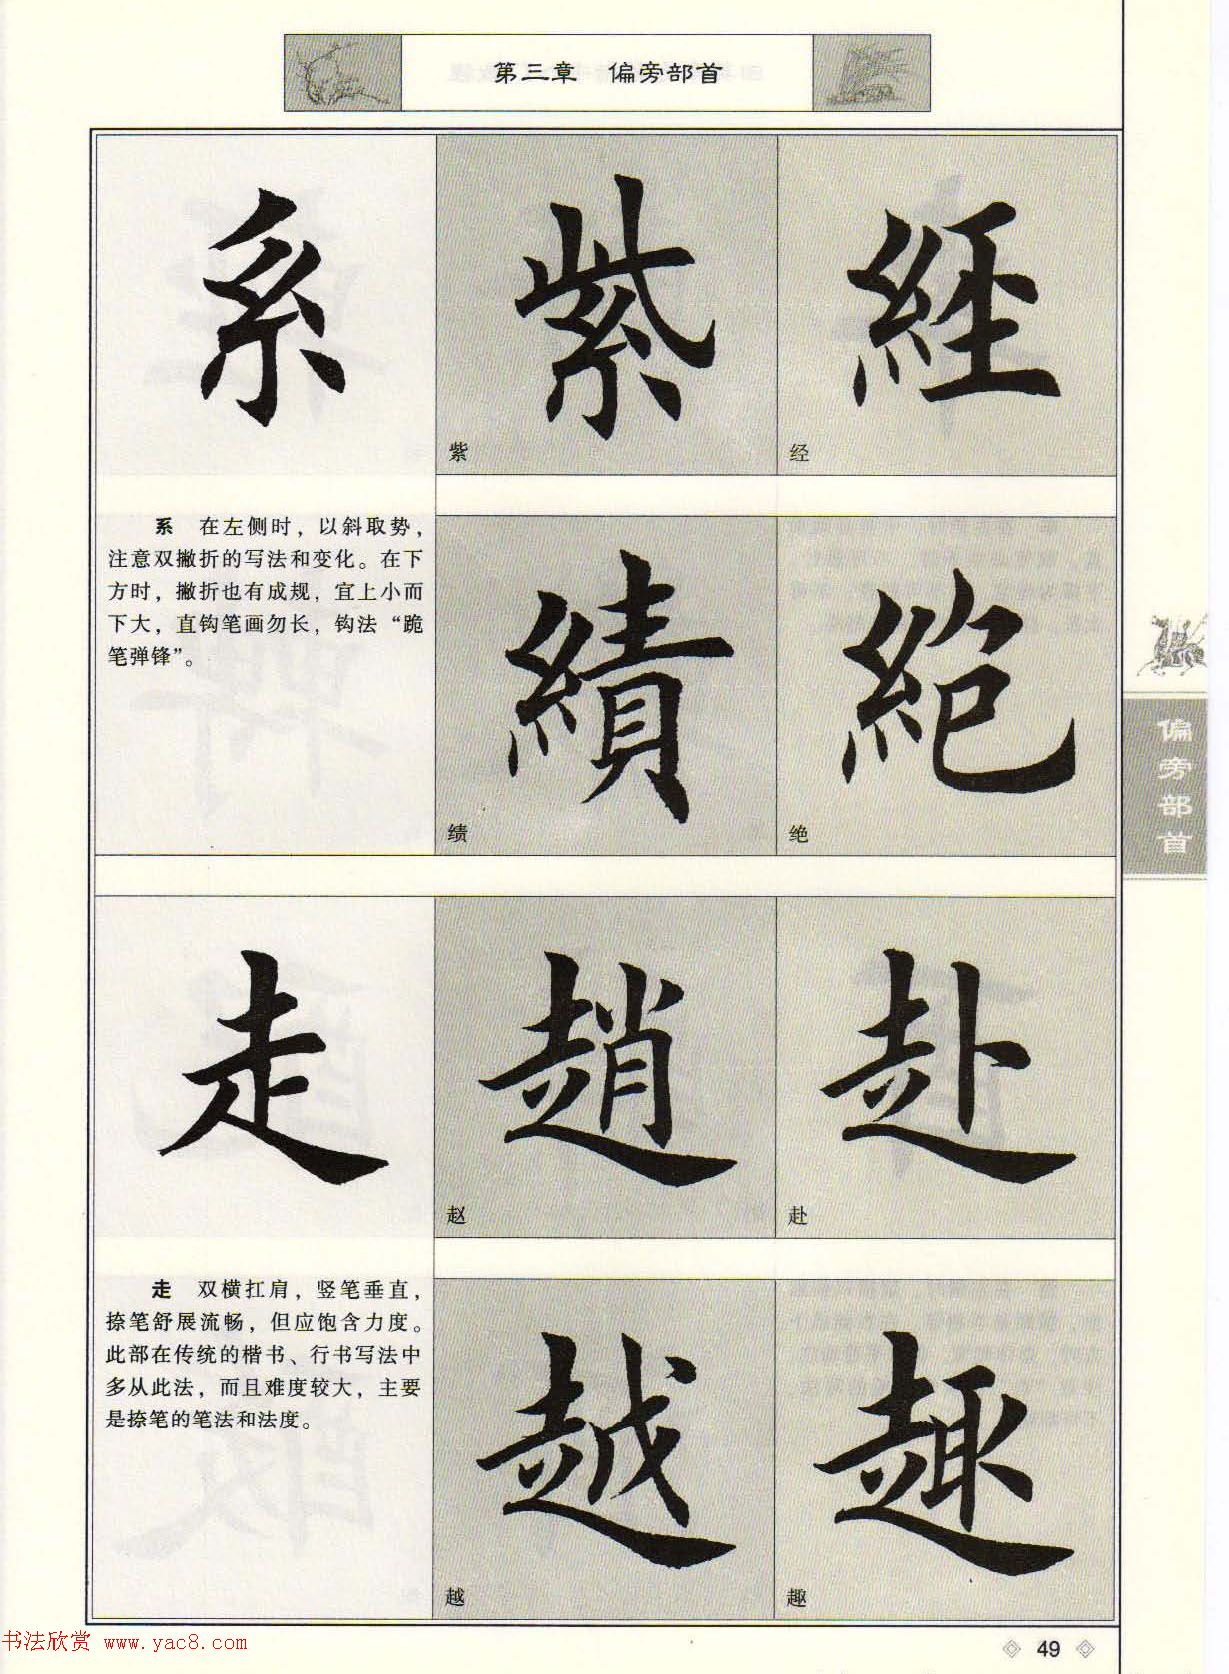 第三章 偏旁部首
系
紫
紫
經
经
系 在左侧时，以斜取势，
注意双撇折的写法和变化。在下
方时，撇折也有成规，宜上小而
下大，直钩笔画勿长，钩法“跪
笔弹锋”。
績
绩
絶
绝
偏旁部首
走
趙
赵
赴
赴
走 双横扛肩，竖笔垂直，
捺笔舒展流畅，但应饱含力度。
此部在传统的楷书、行书写法中
多从此法，而且难度较大，主要
是捺笔的笔法和法度。
越
越
趣
趣
书法欣赏 www.yac8.com
49